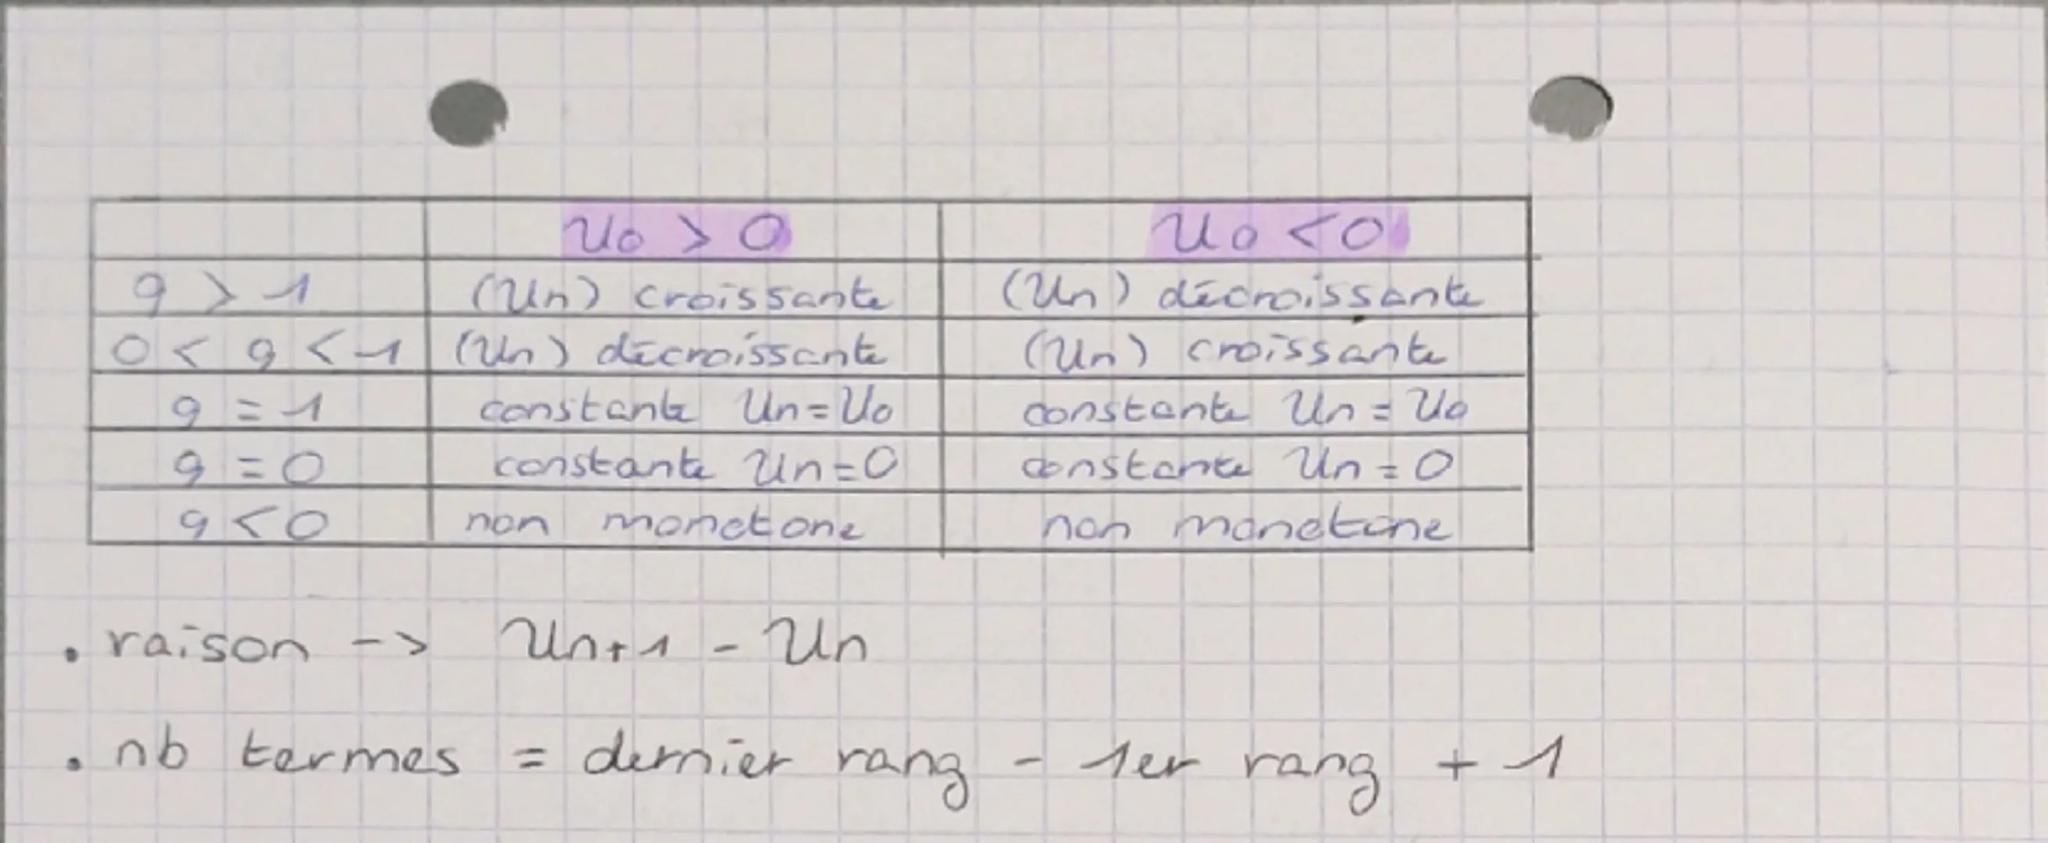 U0 > 0 U0 < 0
q > 1 (Un) croissante (Un) décroissante
0 < q < 1 (Un) décroissante (Un) croissante
q = 1 constante Un = U0 constante Un = U0
q = 0 constante Un = 0 constante Un = 0
q < 0 non monotone non monotone
. raison -> Un+1 - Un
. nb termes = dernier rang - 1er rang + 1